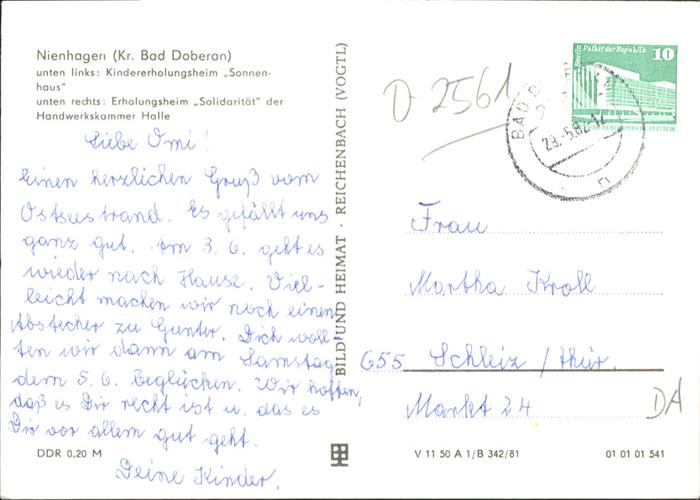 Nienhagen (Kr. Bad Doberan)
unten links: Kindererholungsheim „Sonnen-
haus"
unten rechts: Erholungsheim „Solidarität" der
Handwerkskammer Halle
Liebe Omi!
Einen herzlichen Gruß vom
Ostseestrand. Es gefällt uns
ganz gut. Am 3. 6. geht es
wieder nach Hause. Viel-
leicht machen wir noch einen
Abstecher zu Gunter. Dich woll-
ten wir dann am Samstag
dem 5. 6. beglücken. Wir hoffen,
daß es Dir recht ist u. das es
Dir vor allem gut geht.
Deine Kinder.
DDR 0,20 M
BILD UND HEIMAT · REICHENBACH (VOGTL)
D 2561
BAD D
29.-5.82-12
n
Berlin Palast der Republik 10
DEUTSCHE DEMOKRATISCHE REPUBLIK
Frau
Martha Kroll
655 Schleiz / Thür.
Markt 24
DA
V 11 50 A 1/B 342/81
01 01 01 541